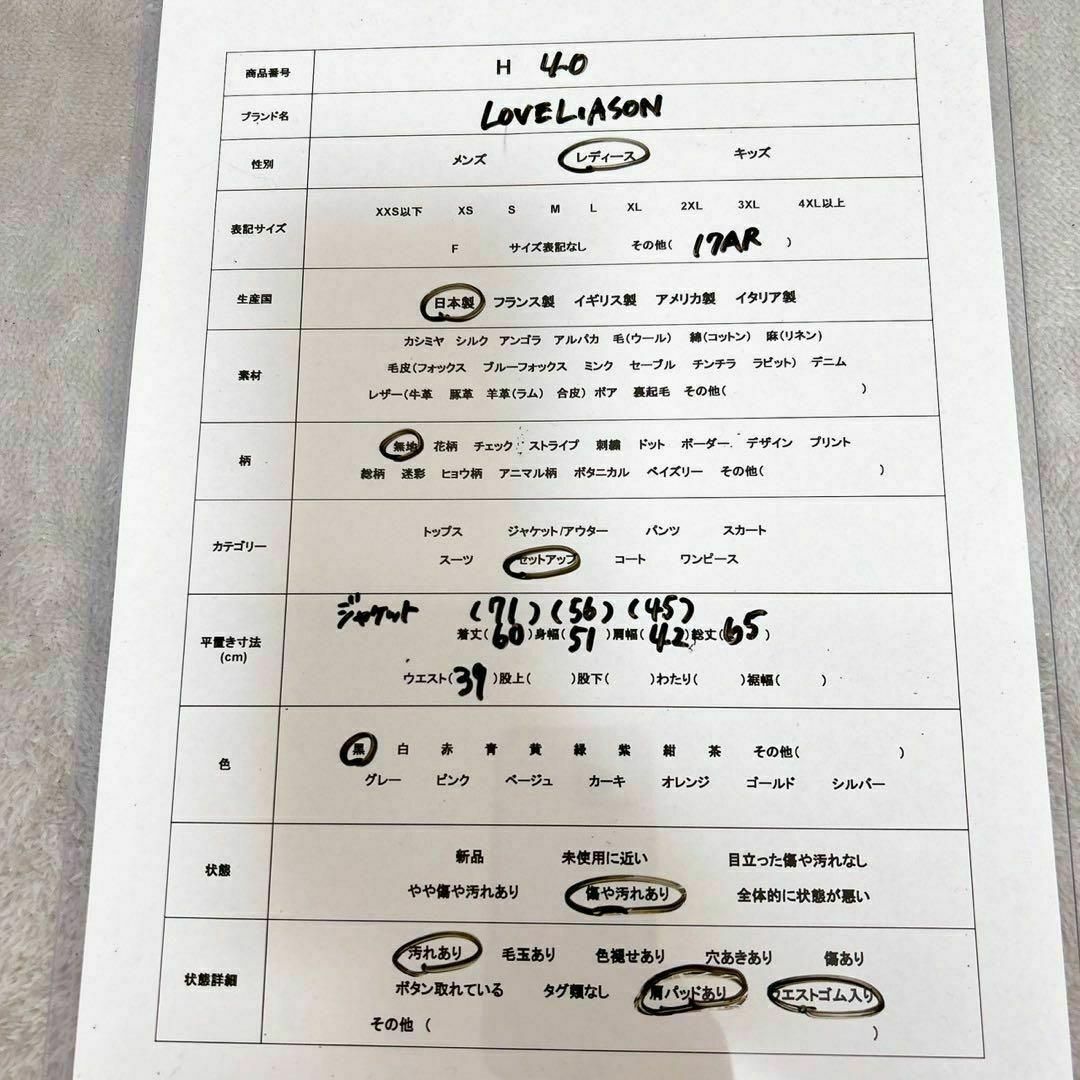 商品番号 H 40
ブランド名 LOVELIASON
性別 メンズ レディース キッズ
XXS以下 XS S M L XL 2XL 3XL 4XL以上
表記サイズ
F サイズ表記なし その他( 17AR )
生産国 日本製 フランス製 イギリス製 アメリカ製 イタリア製
カシミヤ シルク アンゴラ アルパカ 毛(ウール) 綿(コットン) 麻(リネン)
素材 毛皮(フォックス ブルーフォックス ミンク セーブル チンチラ ラビット) デニム
レザー(牛革 豚革 羊革(ラム) 合皮) ボア 裏起毛 その他( )
柄 無地 花柄 チェック ストライプ 刺繍 ドット ボーダー デザイン プリント
総柄 迷彩 ヒョウ柄 アニマル柄 ボタニカル ペイズリー その他( )
トップス ジャケット/アウター パンツ スカート
カテゴリー
スーツ セットアップ コート ワンピース
ジャケット (71) (56) (45)
平置き寸法 着丈(60)身幅(51)肩幅(42)総丈(65)
(cm)
ウエスト(39)股上( )股下( )わたり( )裾幅( )
色 黒 白 赤 青 黄 緑 紫 紺 茶 その他( )
グレー ピンク ベージュ カーキ オレンジ ゴールド シルバー
新品 未使用に近い 目立った傷や汚れなし
状態
やや傷や汚れあり 傷や汚れあり 全体的に状態が悪い
汚れあり 毛玉あり 色褪せあり 穴あきあり 傷あり
状態詳細 ボタン取れている タグ類なし 肩パッドあり ウエストゴム入り
その他 ( )